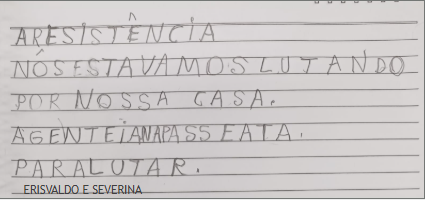 ARESISTÊNCIA
NÔSESTAVAMOS LUTANDO
POR NOSSA CASA.
AGENTEIANAPASSEATA.
PARALUTAR.
ERISVALDO E SEVERINA